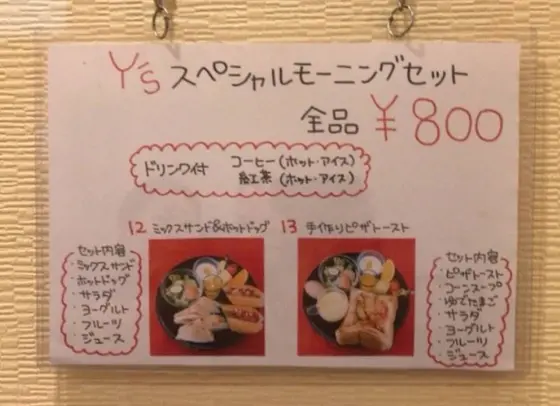 Y'sスペシャルモーニングセット
全品 ¥800
ドリンク付 コーヒー(ホット・アイス)
紅茶(ホット・アイス)
12 ミックスサンド&ホットドッグ
セット内容
・ミックスサンド
・ホットドッグ
・サラダ
・ヨーグルト
・フルーツ
・ジュース
13 手作りピザトースト
セット内容
・ピザトースト
・コーンスープ
・ゆでたまご
・サラダ
・ヨーグルト
・フルーツ
・ジュース